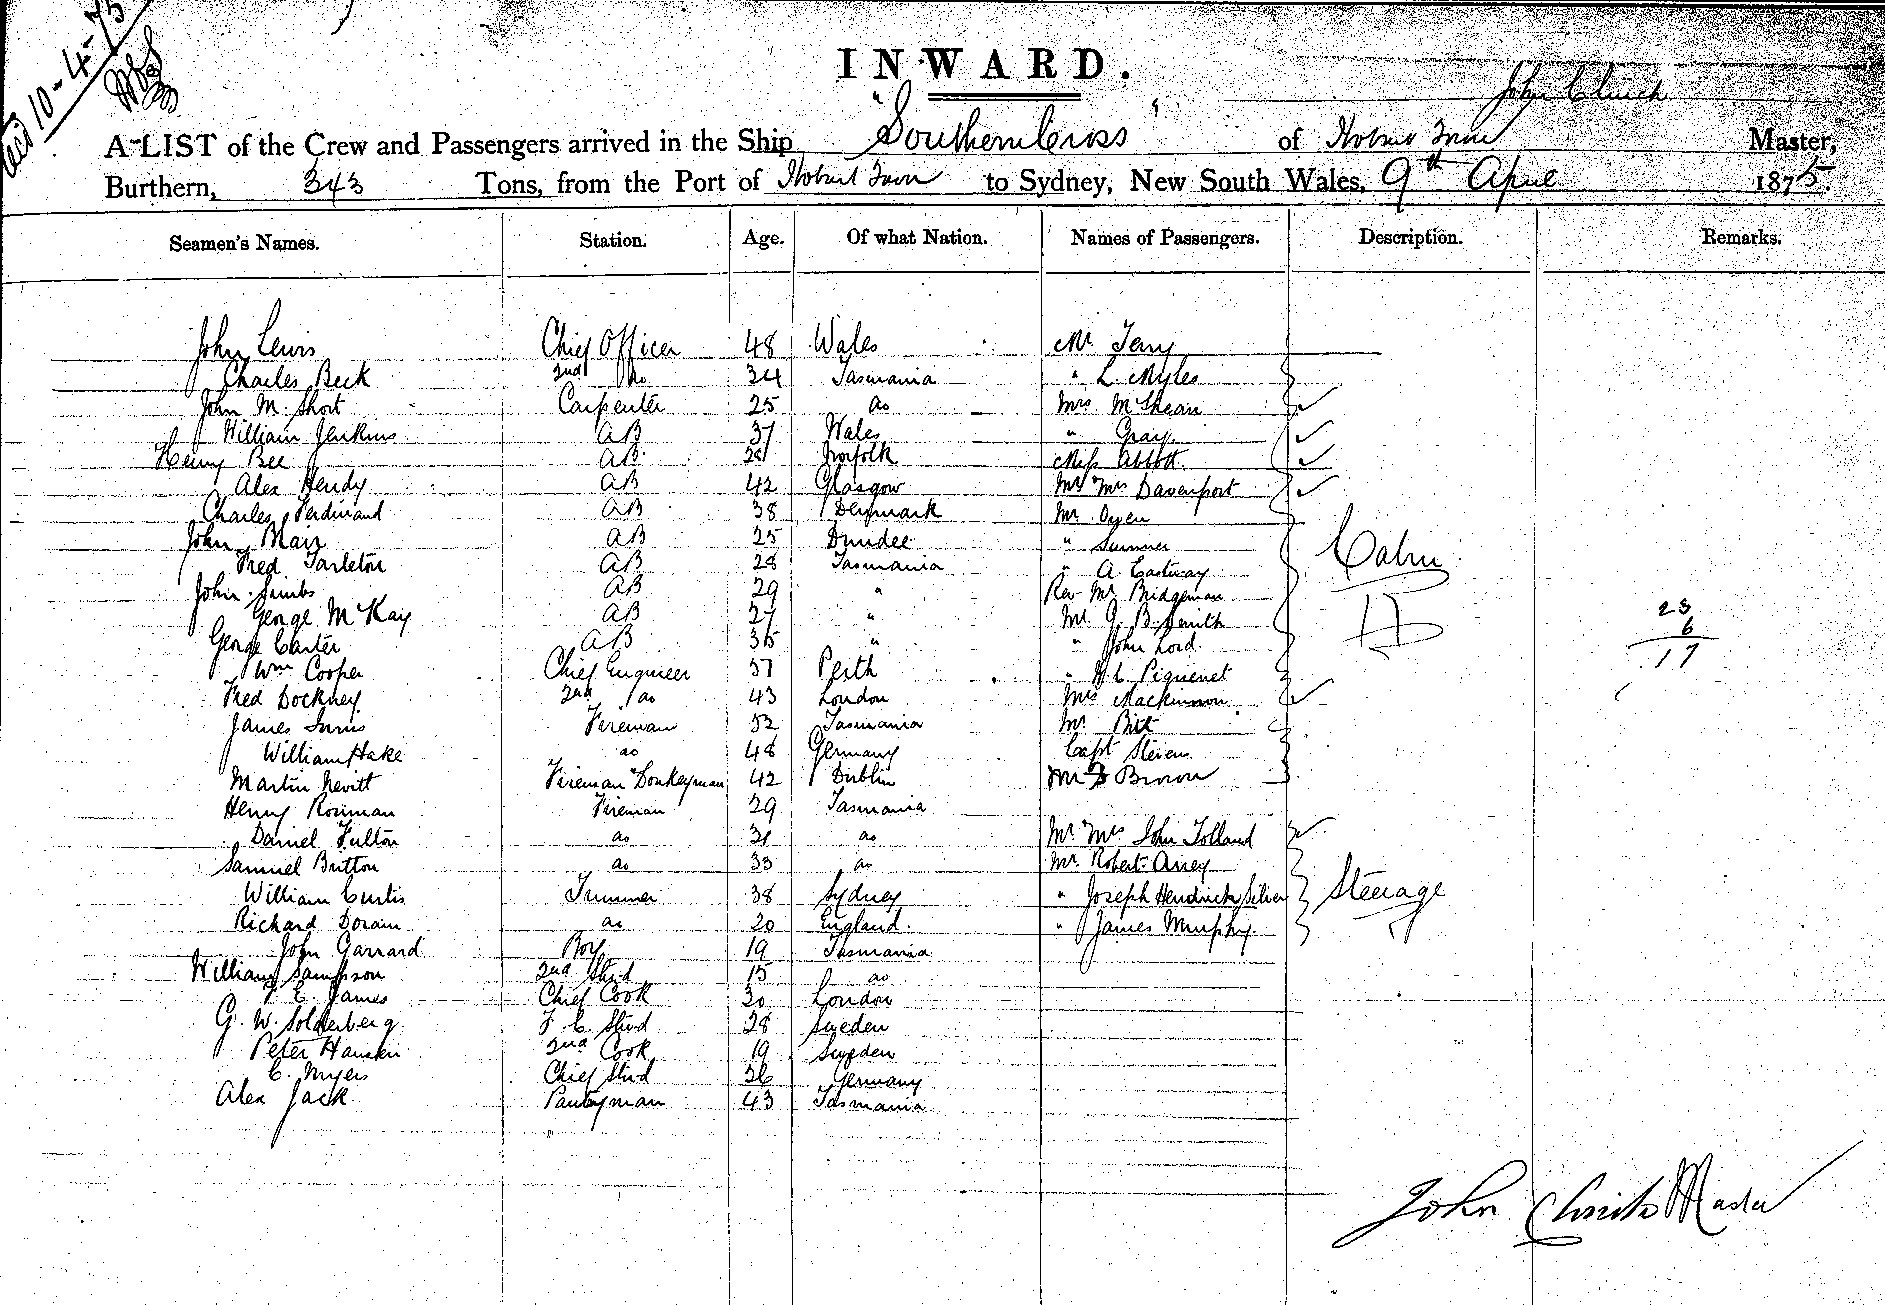 10-4-75
INWARD.
John Clinch
A LIST of the Crew and Passengers arrived in the Ship "Southern Cross" of Hobart Town Master,
Burthern, 343 Tons, from the Port of Hobart Town to Sydney, New South Wales, 9th April 1875.
Seamen's Names. Station. Age. Of what Nation. Names of Passengers. Description. Remarks.
John Lewis Chief Officer 48 Wales Mr Terry
Charles Beck 2nd Do 34 Tasmania " L. Myles
John M. Short Carpenter 25 do Mrs McShean
William Jenkins AB 37 Wales " Gray
Henry Bee AB 28 Norfolk Miss Abbott
Alex Hendy AB 42 Glasgow Mr Mrs Davenport
Charles Ferdinand AB 38 Denmark Mr Oyen
John Marr AB 25 Dundee " Sumner
Fred Tarleton AB 28 Tasmania " A. Eastway Cabin
John Simbs AB 29 " Rev Mr Bridgeman
George McKay AB 27 " Mr G. B. Smith 23
George Carter AB 35 " " John Lord 6
Wm Cooper Chief Engineer 37 Perth " H C. Piguenet 17
Fred Dockney 2nd do 43 London Mrs Mackinnon
James Innis Fireman 52 Tasmania Mr Pitt
William Hake do 48 Germany Capt Steven
Martin Nevitt Fireman "Donkeyman 42 Dublin Mr Brown
Henry Rosiman Fireman 29 Tasmania
Daniel Fulton do 31 do Mr Mrs John Tolland
Samuel Britton do 33 do Mr Robert Airey
William Curtis Trimmer 38 Sydney " Joseph Hendricks Silver Steerage
Richard Dorain do 20 England. " James Murphy
John Garrard Boy 19 Tasmania
William Sampson 2nd Stwd 15 do
E. James Chief Cook 30 London
G. W. Solderberg F. C. Stwd 28 Sweden
Peter Hansen 2nd Cook 19 Sweden
C. Myers Chief Stwd 36 Germany
Alex Jack Pantryman 43 Tasmania
John Clinch Master